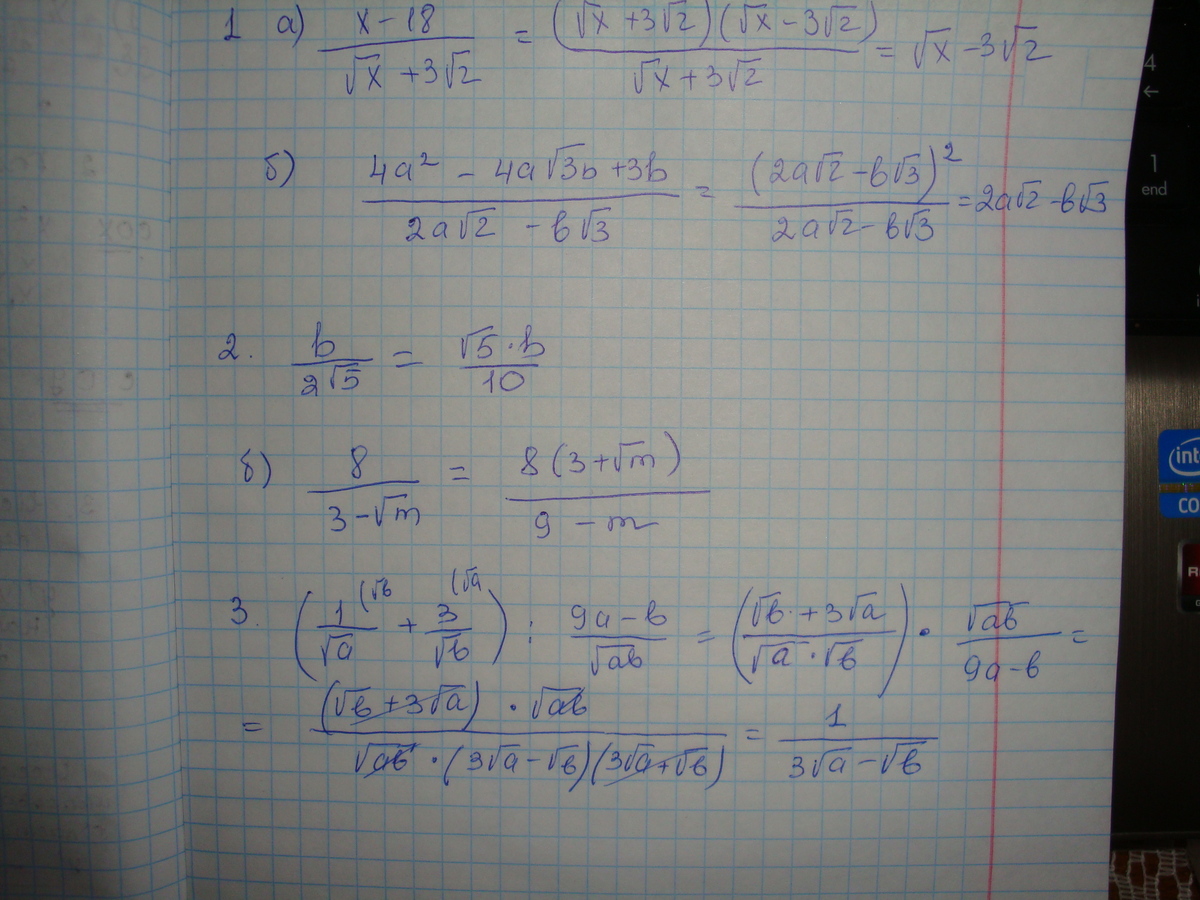 1 а) (x − 18)/(√x + 3√2) = ((√x + 3√2)(√x − 3√2))/(√x + 3√2) = √x − 3√2
б) (4a² − 4a√3b + 3b)/(2a√2 − b√3) = (2a√2 − b√3)²/(2a√2 − b√3) = 2a√2 − b√3
2. b/(2√5) = (√5 · b)/10
б) 8/(3 − √m) = (8(3 + √m))/(9 − m)
3. (1/√a (√b + 3/√b (√a) : (9a − b)/√ab = ((√b + 3√a)/(√a · √b)) · √ab/(9a − b) =
= ((√b + 3√a) · √ab)/(√ab · (3√a − √b)(3√a + √b)) = 1/(3√a − √b)
4
←
1
end
int
CO
R